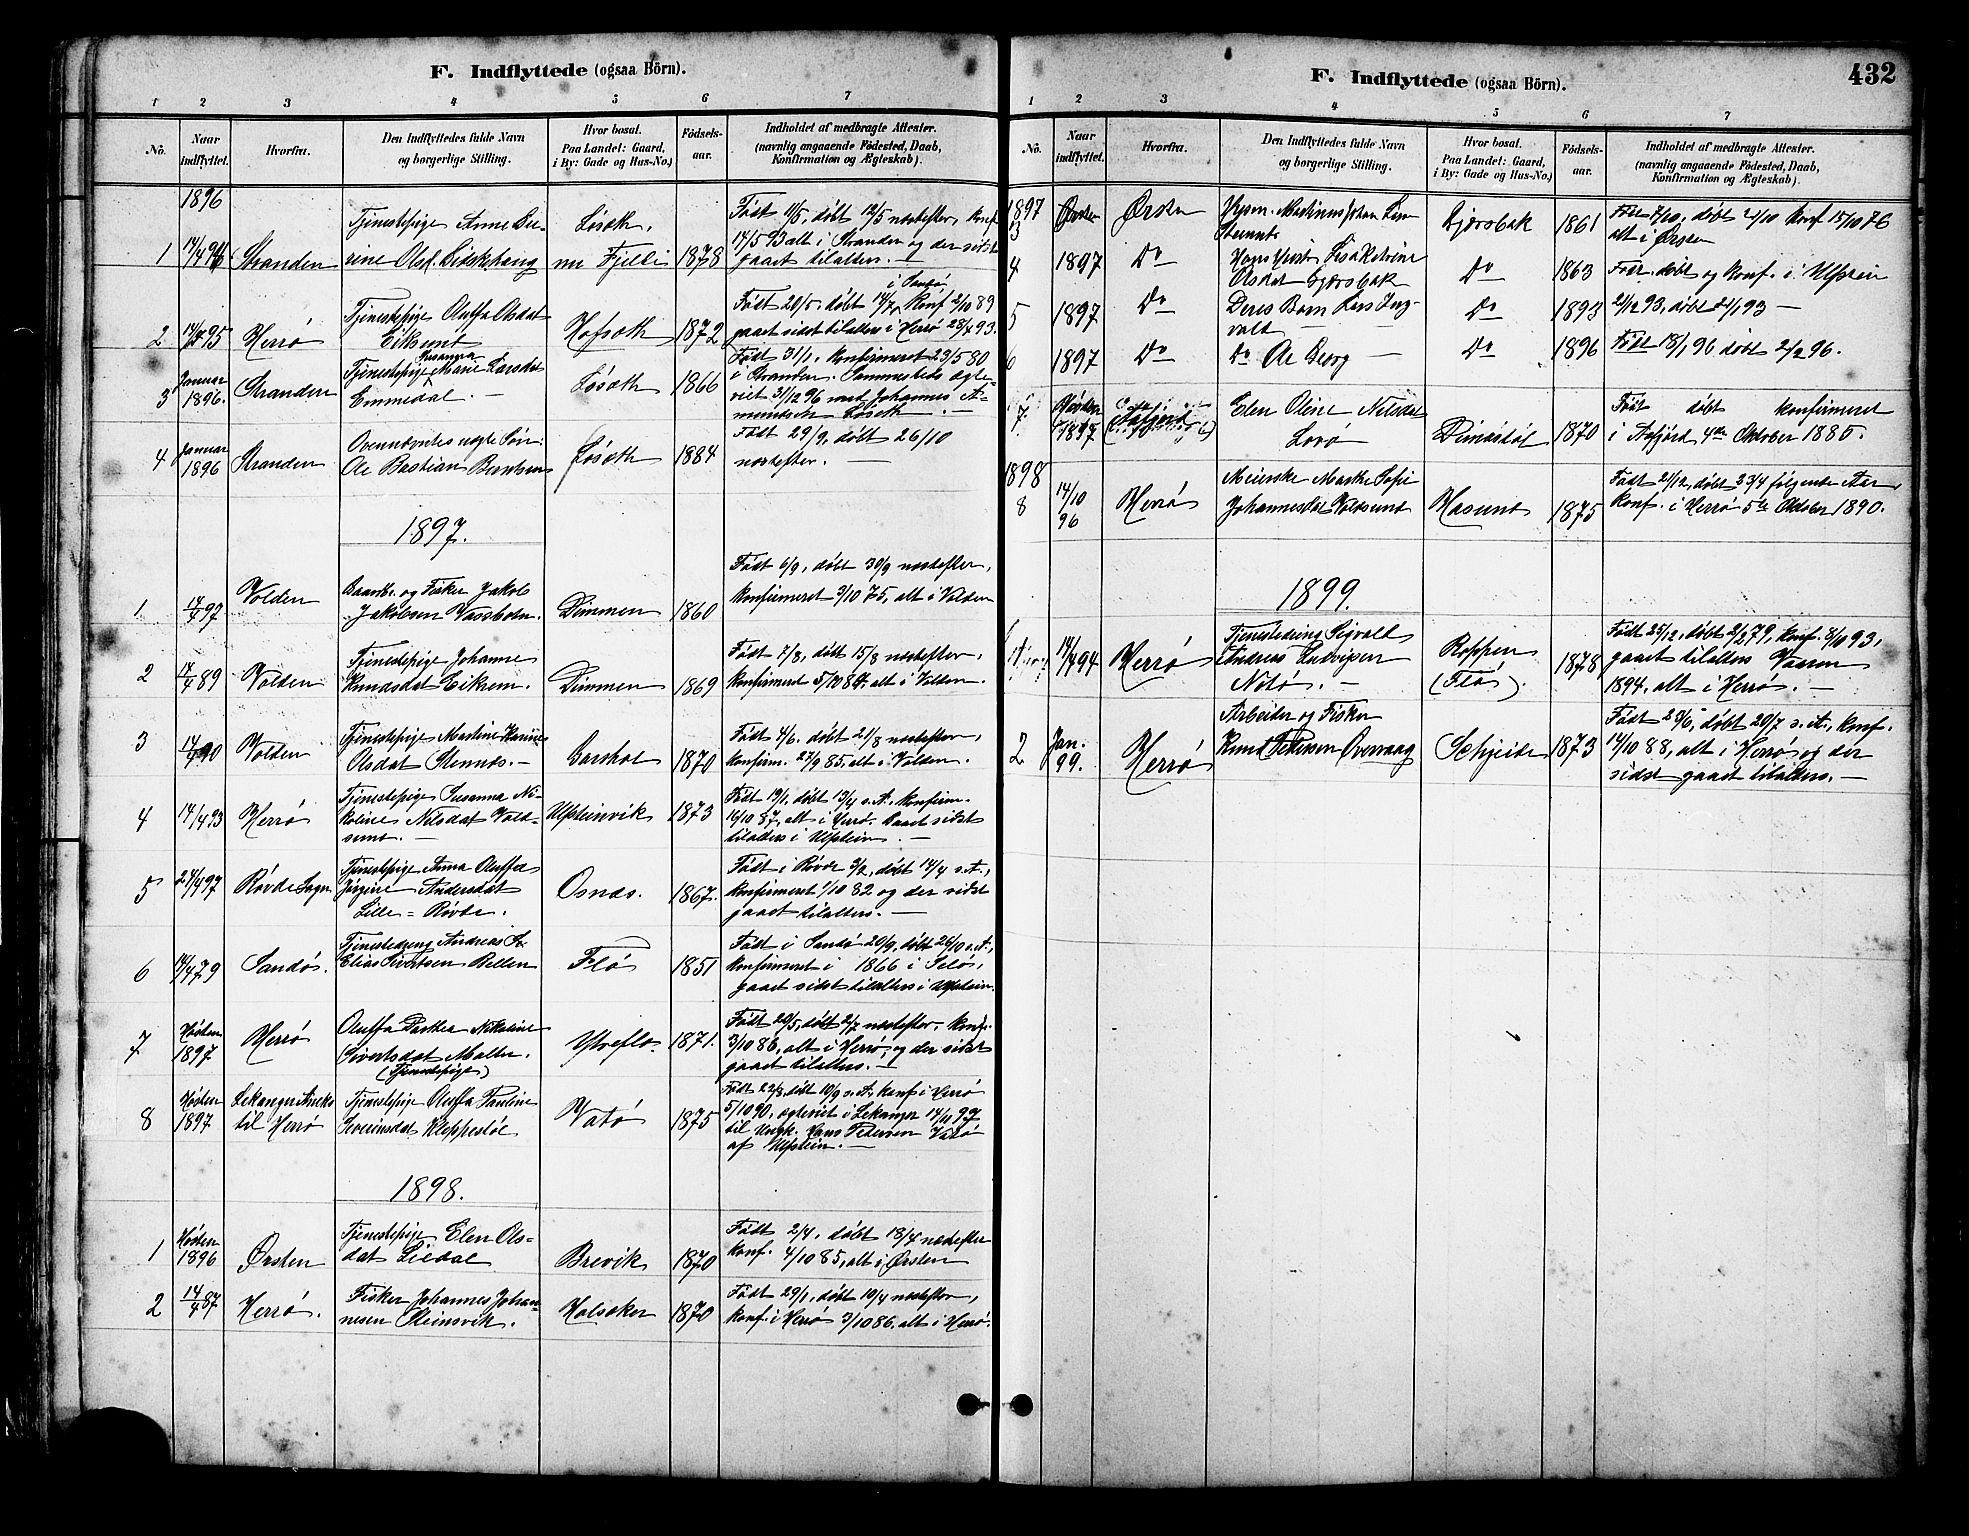 F. Indflyttede (ogsaa Börn).
1 2 3 4 5 6 7
No.
Naar indflyttet.
Hvorfra.
Den Indflyttedes fulde Navn
og borgerlige Stilling.
Hvor bosat.
Paa Landet: Gaard,
i By: Gade og Hus-No.)
Födsels-
aar.
Indholdet af medbragte Attester.
(navnlig angaaende Födested, Daab,
Konfirmation og Ægteskab).
1896
1 Stranden
Tjenestepige Anne
rine Olsd.
Løseth,
1878
Født 11/5, døbt 12/5 næstefter, konf.
14/5 93 alt i Stranden og der sidst
gaaet tilalters. —
2 14/ 95 Herrø
Tjenestepige Oluffa Olsdat
Eiksund
Hofseth 1872
i Sandø,
Født 20/5, døbt 14/7, konf 2/10 89
gaaet sidst tilalters i Herrø 23/4 93.
3 Januar 1896. Stranden
Susanna
Tjenestepige Marie Larsdat
Emmedal. —
Løseth 1866
Født 31/1, konfirmeret 23/5 80
i Stranden. Sammesteds ægte-
viet 31/12 96 med Johannes A-
mundsen Løseth. —
4 Januar 1896 Stranden
Ovennævntes uægte Søn:
Ole Bastian Berntsen
Løseth 1884
Født 29/9, døbt 26/10
næstefter. —
1897.
1 14/4 97 Volden
og Fisker Jakob
Jakobsen Vassbotn.
Dimmen 1860
Født 6/9, døbt 30/9 næstefter,
konfirmeret 3/10 75, alt i Volden
2 14/4 89 Volden
Tjenestepige Johanne
Knudsdat Eiksem.
Dimmen 1869
Født 7/8, døbt 15/8 næstefter,
konfirmeret 5/10 84, alt i Volden.
3 14/4 90 Volden
Tjenestepige Martine Karine
Olsdat Stennes. —
Garshol 1870
Født 4/6, døbt 21/8 næstefter,
konfirm. 27/9 85, alt i Volden.
4 14/4 93 Herrø
Tjenestepige Susanna Ni-
koline Nilsdat Vold-
sund. —
Ulfsteinvik 1873
Født 19/1, døbt 13/4 s.A., konfirm.
16/10 87, alt i Herrø. Gaaet sidst
tilalters i Ulfstein —
5 24/4 97 Røvde Sogn
Tjenestepige Anna Oluffa
Jørgine Andersdat
Lille = Røvde.
Osnæs. 1867.
Født i Røvde 3/2, døbt 14/4 s.A.,
konfirmeret 1/10 82 og der sidst
gaaet tilalters. —
6 14/4 79 Sandø.
Tjenestedreng Andreas
Elias Sivertsen
Flø 1851
Født i Sandø 20/9, døbt 26/10 s.A.,
konfirmeret i 1866 i Selø,
gaaet sidst tilalters i Ulfstein.
7 Høsten 1897 Herrø
Oluffa Dorthea Nikoline
Sivertsdat Molter.
(Tjenestepige)
Ytreflø 1871.
Født 20/5, døbt 2/7 næstefter, konf.
3/10 86, alt i Herrø, og der sidst
gaaet tilalters. —
8 Høsten 1897
til Herrø
Tjenestepige Oluffa Pauline
Severinsdat Kleppestøl
Vatø 1875
Født 22/8, døbt 10/9 s.A, konf i Herrø
5/10 90, ægteviet i Lekanger 14/11 97
til Ungk. Hans Petersen Vatø
af Ulfstein. —
1898.
1 Høsten 1896 Ørsten
Tjenestepige Elen Ols-
dat Liedal
Brevik 1870
Født 2/4, døbt 18/4 næstefter
konf. 4/10 85, alt i Ørsten
2 14/4 87 Herrø.
Fisker Johannes Johan-
nesen Kleinsvik.
Halsøker 1870
Født 29/1, døbt 10/4 næstefter,
konf. i Herrø 3/10 86, alt i Herrø.
F. Indflyttede (ogsaa Börn).
432
1 2 3 4 5 6 7
No.
Naar indflyttet.
Hvorfra.
Den Indflyttedes fulde Navn
og borgerlige Stilling.
Hvor bosat.
Paa Landet: Gaard,
i By: Gade og Hus-No.)
Födsels-
aar.
Indholdet af medbragte Attester.
(navnlig angaaende Födested, Daab,
Konfirmation og Ægteskab).
1897
3 Ørsten
Martinus Johan
Gjærsbak 1861
Født 7/10, døbt 21/10 konf 15/10 76
alt i Ørsten
4 1897 Do
Lisa Katrine
Olsdat Gjærsbak
Do 1863
Født, døbt og konf. i Ulfstein
5 1897 Do
Deres Barn Lars Ing-
vald
Do 1893
6 1897 Do
Do Ole Georg —
Do 1896
Født 18/1 96 døbt 2/2 96.
7 Høsten 1897
Elen Oline Nilsdat
Lovø
1870
Født døbt konfirmeret
i Aafjord 4de Oktober 1885.
1898
8 14/10 96 Herrø
Meierske Marthe Sofie
Johannesdat Voldsund
Hasund 1875
Født 21/12, døbt 23/4 følgende Aar,
konf. i Herrø 5te Oktober 1890.
1899.
14/4 94 Herrø
Tjenestedreng Sigvald
Andreas Ludvigsen
Notø. —
Roppen
(Flø).
1878
Født 25/12, døbt 2/2 79, konf. 8/10 93,
gaaet tilalters Vaaren
1894, alt i Herrø. —
2 Jan. 99. Herrø
Arbeider og Fisker
Knud Petersen Overaag
1873
Født 23/6, døbt 20/7 s.A., konf.
14/10 88, alt i Herrø og der
sidst gaaet tilalters. —